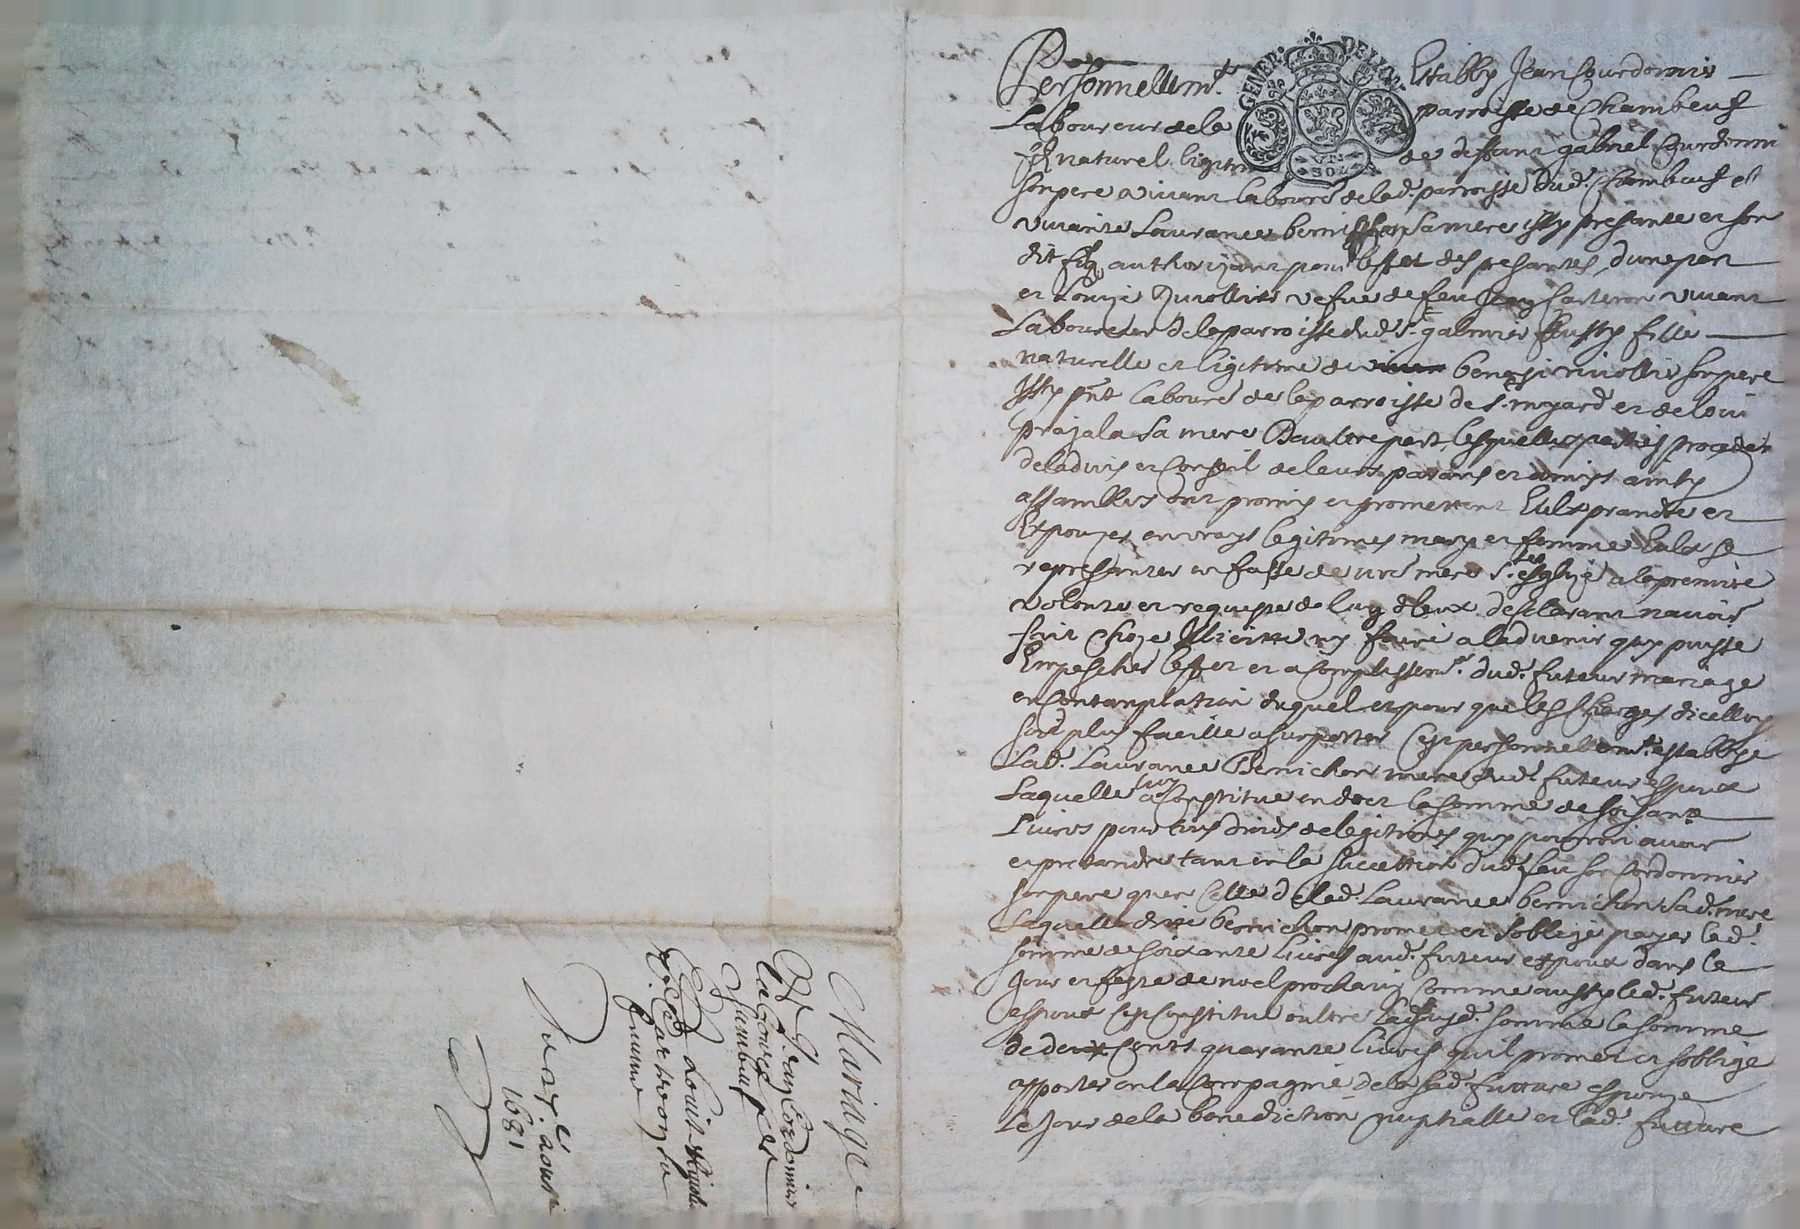 Personnellemt. Establly Jean Courdonnis
GENER. DE LYON
VI. SOLZ
Laboureur de la parroisse de Chambeuf
filz naturel ligitime de deffunt gabriel Courdonni
son pere vivant laboure de lad. parroisse dud. Chambeuf et
vivante Laurance bernichon sa mere issy presante et son
dit filz authorizant pour leffet des presantes dune part
et Louize Rivollies vefue de feu Jean Carteron vivant
Laboureur de la parroisse dud. St. galmier aussy fille
naturelle et ligitime de benoist rivollie son pere
Issy pnt laboure de la parroisse de St. myard et de
sa mere Daultre part lesquelles parties procedet
de ladvis et Conseil de leurs parans et amis
assamblés ont promis et promettent prandre et
Espouzer en vrays legitimes mary et femme
represanter en fasse de nre mere Ste. esglize a la premiere
volonte et requeste de lung deux desclarant navoir
fait choze Illicitte ny faire a ladvenir quy puisse
Empescher leffet et acomplissemt. dud. futeur mariage
en Contamplation duquel et pour que les charges dicelluy
soit plus facille a suporter Cest personnellemt. establye
Lad. Laurance Bernichon mere dud. futeur espoux
Laquelle luy a Constitue en dot la somme de soisante
Livres pour tous droids de legitimes quy pourroit avoir
et pretandre tant en la succettion dud. feu Cordonnier
son pere quen Celle de lad. Laurance bernichon sad. mere
Laquelle dite bernichon promet et soblige payer lad.
somme de soixante livres aud. futeur espoux dans le
jour et feste de noel prochain Comme aussy led. futeur
espoux Constitue oultre lad. somme la somme
de deux Cents quarante livres quil promet et soblige
apporter en la Compagnie de la sad. futture espouze
Le Jour de la benediction nuptialle et lad. futture
Mariage
De Jean Cordonnier
laboureur de
Chambeuf
Et Louise Rivolie
vefve
Carteron
Du 27e. aoust
1681